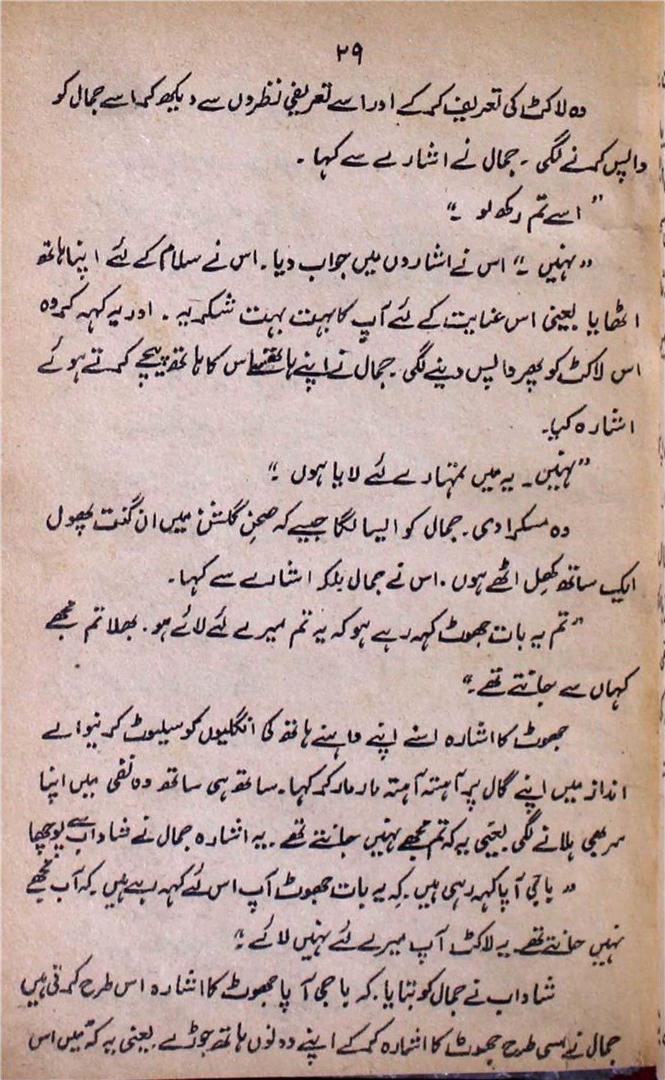 ۲۹
وہ لاکٹ کی تعریف کر کے اور اسے تعریفی نظروں سے دیکھ کر اسے جمال کو
واپس کرنے لگی ۔ جمال نے اشارے سے کہا ۔
” اسے تم رکھ لو ۔“
” نہیں ۔“ اس نے اشاروں میں جواب دیا ۔ اس نے سلام کے لئے اپنا ہاتھ
اٹھایا یعنی اس عنایت کے لئے آپ کا بہت بہت شکریہ ۔ اور یہ کہہ کر وہ
اس لاکٹ کو پھر واپس دینے لگی ۔ جمال نے اپنے ہاتھ اس کا ہاتھ پیچھے کرتے ہوئے
اشارہ کیا ۔
” نہیں ۔ یہ میں تمہارے لئے لایا ہوں ۔“
وہ مسکرا دی ۔ جمال کو ایسا لگا جیسے کہ صحن گلشن میں ان گنت پھول
ایک ساتھ کھل اٹھے ہوں ۔ اس نے جمال بلکہ اشارے سے کہا ۔
” تم یہ بات جھوٹ کہہ رہے ہو کہ یہ تم میرے لئے لائے ہو ۔ بھلا تم مجھے
کہاں سے جانتے تھے ۔“
جھوٹ کا اشارہ اسنے اپنے داہنے ہاتھ کی انگلیوں کو سیلیوٹ کرنیوالے
انداز میں اپنے گال پر آہستہ آہستہ مار مار کر کہا ۔ ساتھ ہی ساتھ وہ نفی میں اپنا
سر بھی ہلانے لگی یعنی یہ کہ تم مجھے نہیں جانتے تھے ۔ یہ اشارہ جمال نے شاداب سے پوچھا
” باجی آپا کہہ رہی ہیں ۔ کہ یہ بات جھوٹ آپ اس لئے کہہ رہے ہیں ۔ کہ آپ مجھے
نہیں جانتے تھے ۔ یہ لاکٹ آپ میرے لئے نہیں لائے ۔“
شاداب نے جمال کو بتایا ۔ کہ باجی آپا جھوٹ کا اشارہ اس طرح کرتی ہیں
جمال نے اسی طرح جھوٹ کا اشارہ کر کے اپنے دونوں ہاتھ جوڑے ۔ یعنی یہ کہ میں اس